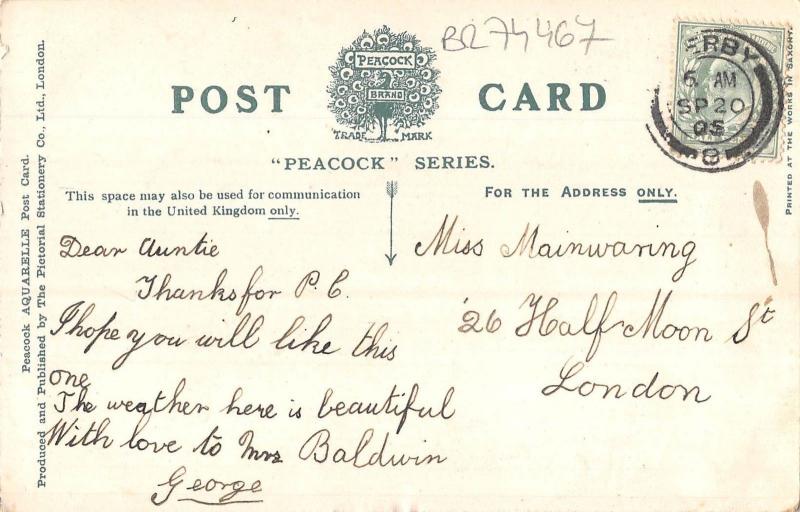 BR74467
PEACOCK
BRAND
TRADE MARK
POST CARD
"PEACOCK" SERIES.
This space may also be used for communication
in the United Kingdom only.
FOR THE ADDRESS ONLY.
ERBY
6 AM
SP 20
05
8
Dear Auntie
Thanks for P.C.
I hope you will like this
one
The weather here is beautiful
With love to Mrs Baldwin
George
Miss Mainwaring
26 Half Moon St
London
Peacock AQUARELLE Post Card.
Produced and Published by The Pictorial Stationery Co., Ltd., London.
PRINTED AT THE WORKS IN SAXONY.